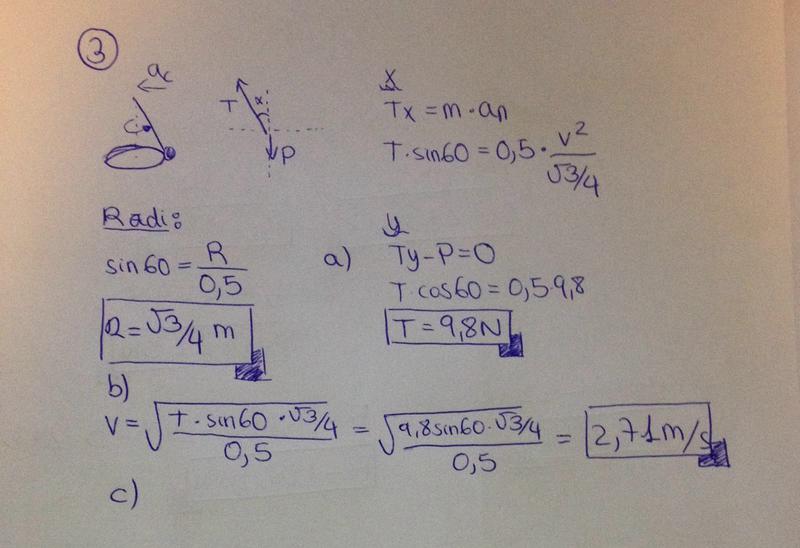 3
ac
T
α
P
x
Tx = m·an
T·sin60 = 0,5·v²/√3/4
Radi:
sin60 = R/0,5
R = √3/4 m
a)
y
Ty-P=0
T·cos60 = 0,5·9,8
T = 9,8N
b)
v = √(T·sin60·√3/4 / 0,5) = √(9,8sin60·√3/4 / 0,5) = 2,71m/s
c)